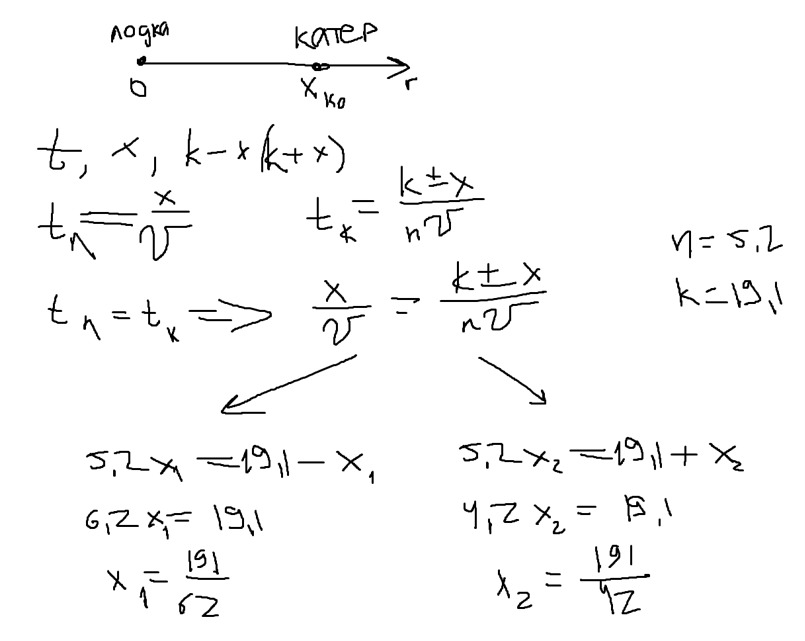 лодка катер
0 x_ко r
t, x, k-x(k+x)
t_л = x/v t_к = (k±x)/(nv)
n = 5,2
k = 19,1
t_л = t_к => x/v = (k±x)/(nv)
5,2x₁ = 19,1 - x₁ 5,2x₂ = 19,1 + x₂
6,2x₁ = 19,1 4,2x₂ = 19,1
x₁ = 191/62 x₂ = 191/42